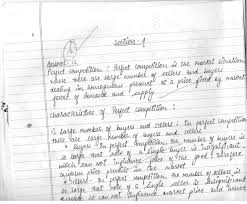 Section-A
Answer 12
Perfect competition: Perfect competition is the market situation
where there are large number of sellers and buyers
dealing in homogeneous product at a price fixed by market
force of demand and supply.
Characteristics of Perfect competition:
1. Large number of buyers and sellers: In perfect competition
there are large number of buyers and sellers
Buyers - In perfect competition the number of buyers is
so large that role of a single buyer is insignificant
which can not influence price of the good. Therefore
uniform price prevails in the market
Sellers - In perfect competition, the number of sellers is
so large that role of a single seller is insignificant
it can not influence market price and